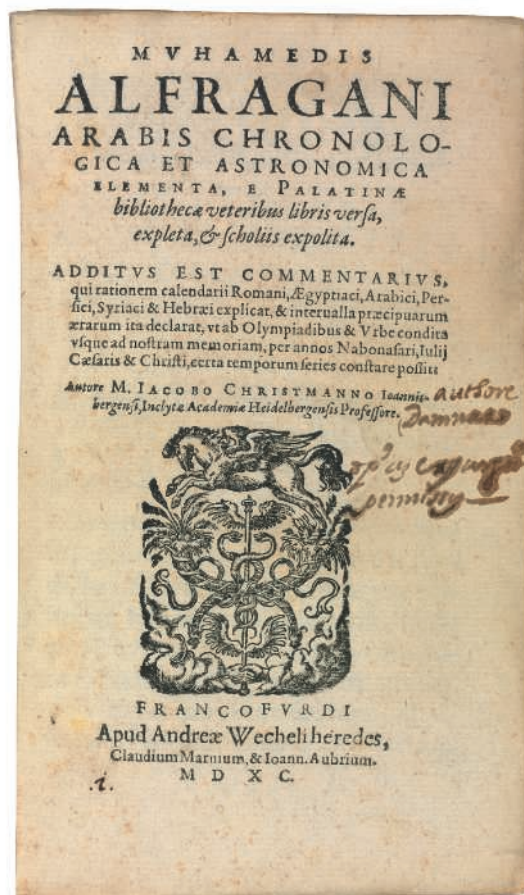 MVHAMEDIS
ALFRAGANI
ARABIS CHRONOLO-
GICA ET ASTRONOMICA
ELEMENTA, E PALATINÆ
bibliothecæ veteribus libris versa,
expleta, & scholiis expolita.
ADDITVS EST COMMENTARIVS,
qui rationem calendarii Romani, Ægyptiaci, Arabici, Per-
sici, Syriaci & Hebræi explicat, & interualla præcipuarum
ærarum ita declarat, vt ab Olympiadibus & Vrbe condita
vsque ad nostram memoriam, per annos Nabonasari, Iulij
Cæsaris & Christi, certa temporum series constare possit:
Autore M. IACOBO CHRISTMANNO Ioannis-
bergensi, Inclytæ Academiæ Heidelbergensis Professore.
authore
Damnato
permissum
FRANCOFVRDI
Apud Andreæ Wecheli heredes,
Claudium Marnium, & Ioann. Aubrium.
MDXC.
.1.